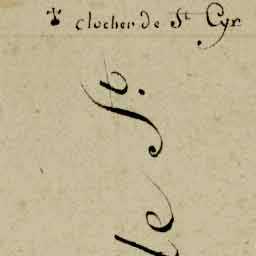 clocher de St Cyr
le St.